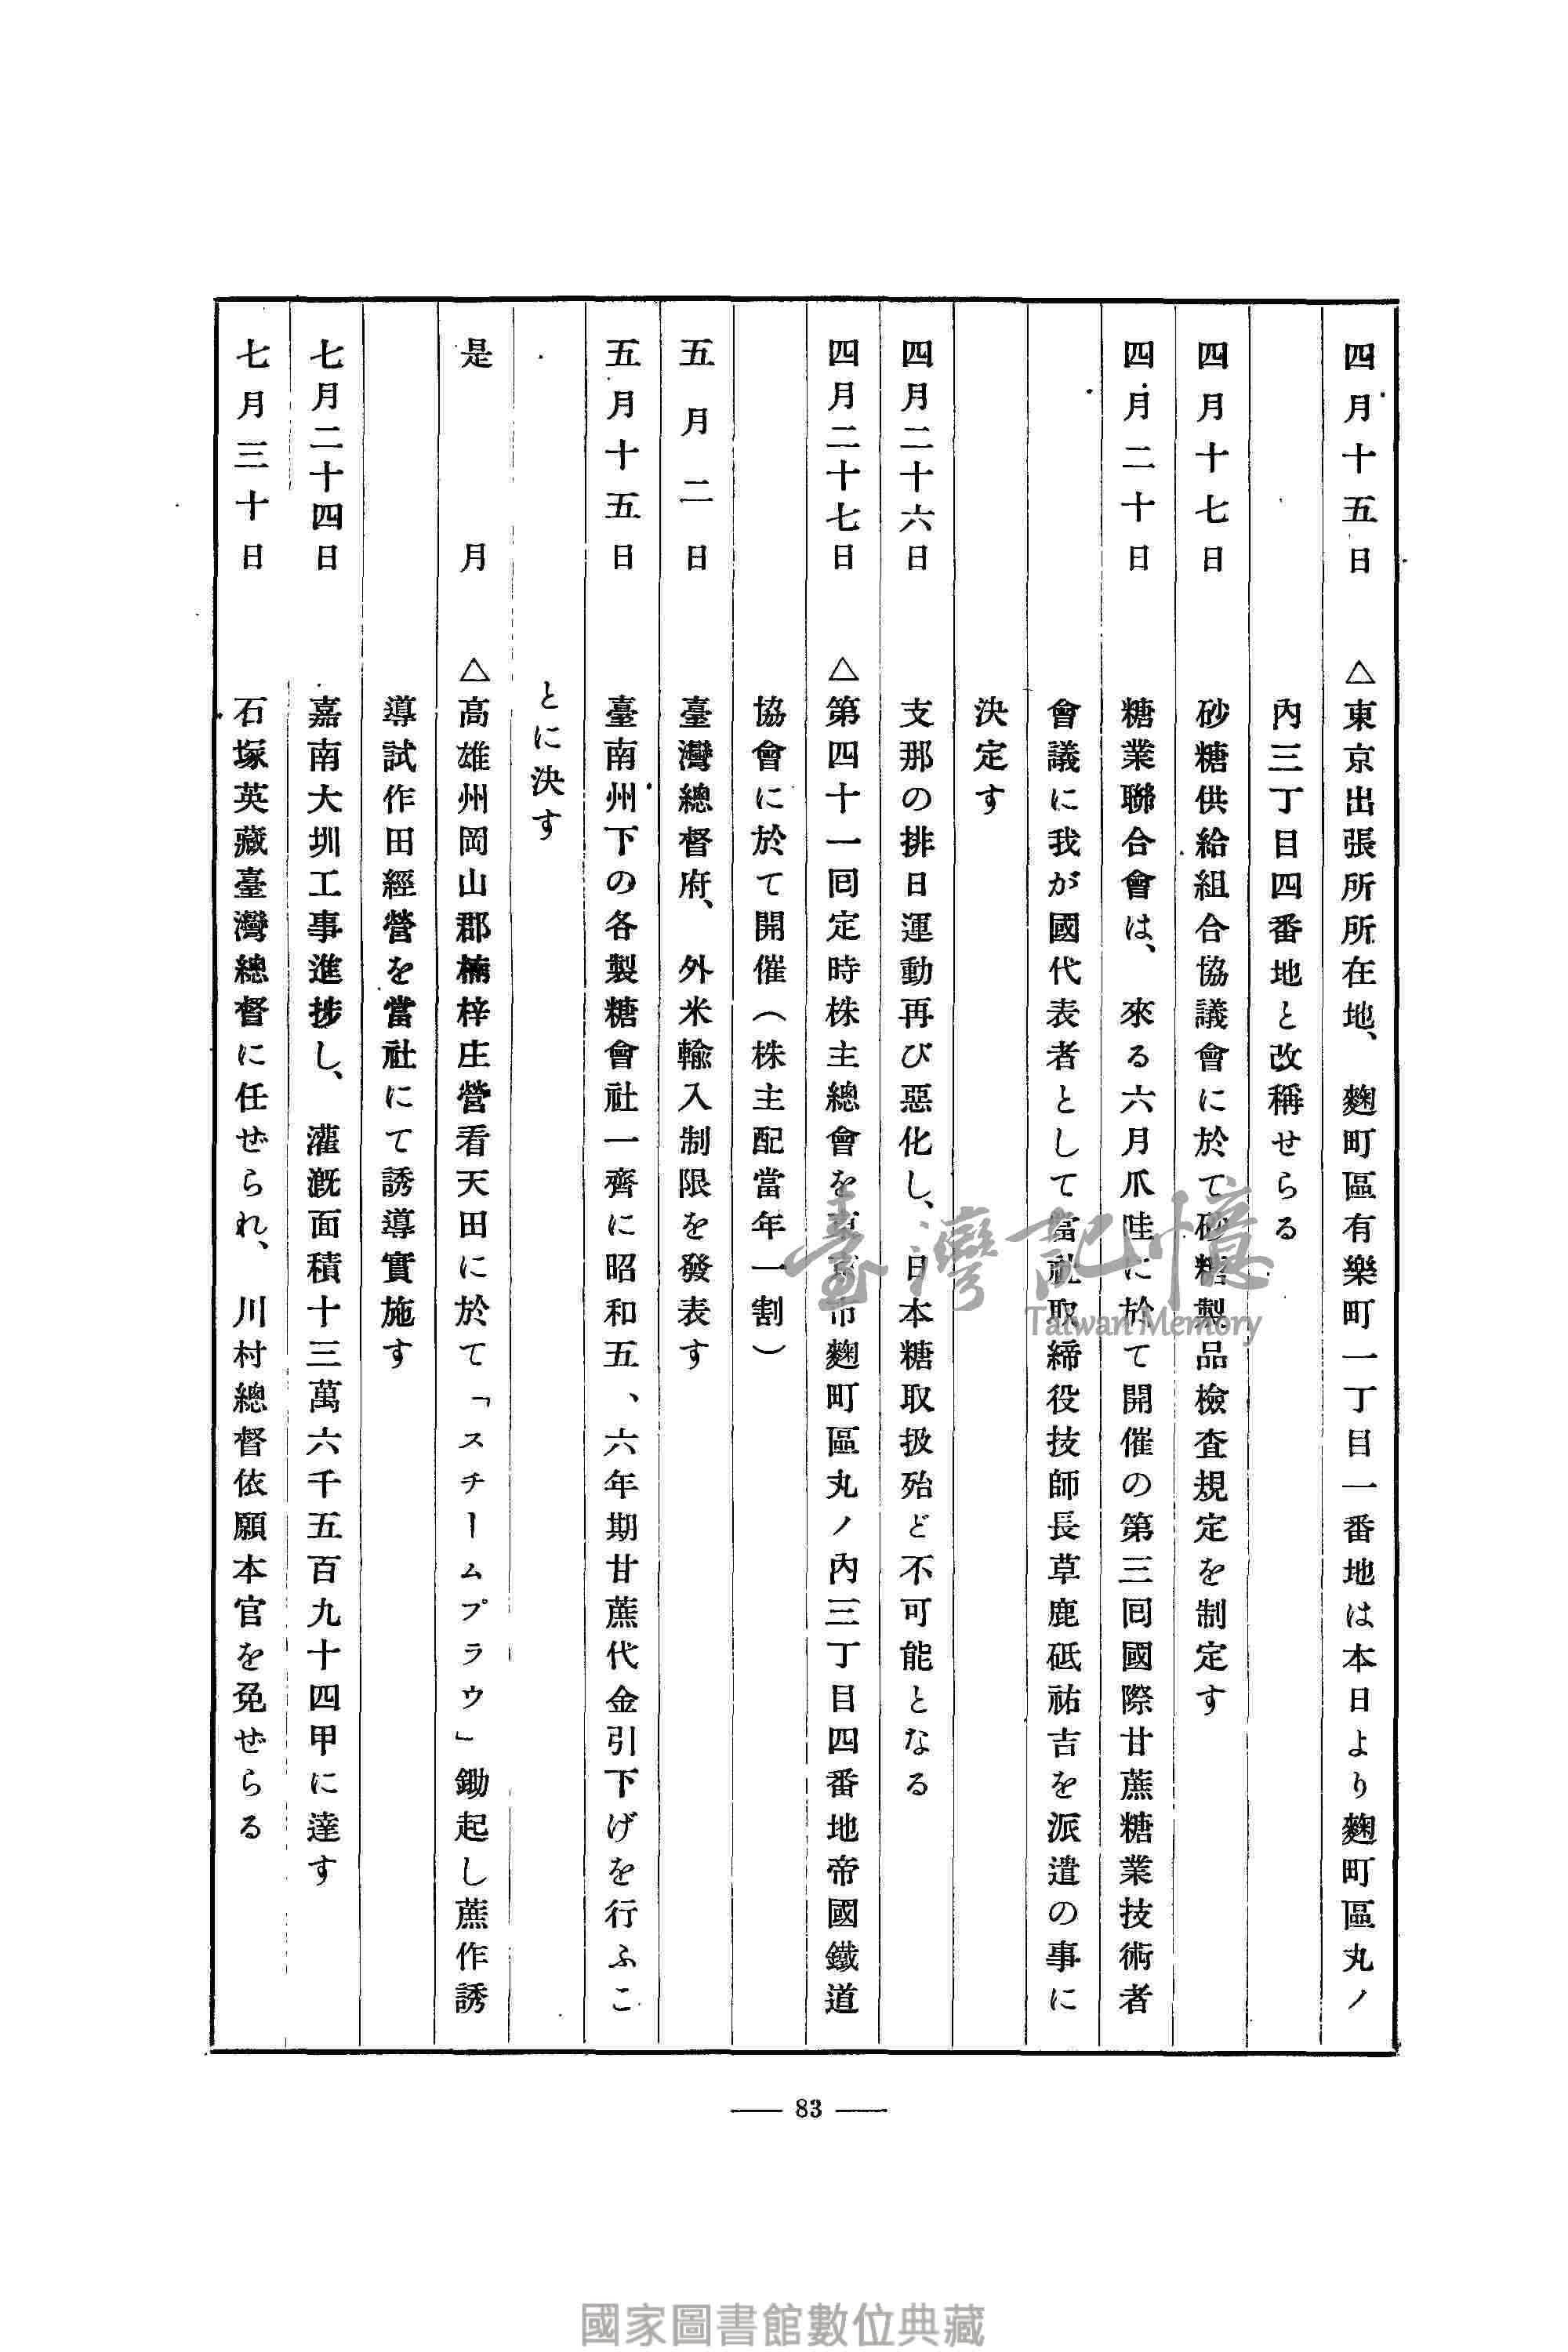 四月十五日 △東京出張所所在地、麴町區有樂町一丁目一番地は本日より麴町區丸ノ
內三丁目四番地と改稱せらる
四月十七日 砂糖供給組合協議會に於て砂糖製品檢査規定を制定す
四月二十日 糖業聯合會は、來る六月爪哇に於て開催の第三囘國際甘蔗糖業技術者
會議に我が國代表者として當社取締役技師長草鹿砥祐吉を派遣の事に
決定す
四月二十六日 支那の排日運動再び惡化し、日本糖取扱殆ど不可能となる
四月二十七日 △第四十一囘定時株主總會を東京市麴町區丸ノ內三丁目四番地帝國鐵道
協會に於て開催（株主配當年一割）
五月二日 臺灣總督府、外米輸入制限を發表す
五月十五日 臺南州下の各製糖會社一齊に昭和五、六年期甘蔗代金引下げを行ふこ
とに決す
是月 △高雄州岡山郡楠梓庄營看天田に於て「スチームプラウ」鋤起し蔗作誘
導試作田經營を當社にて誘導實施す
七月二十四日 嘉南大圳工事進捗し、灌漑面積十三萬六千五百九十四甲に達す
七月三十日 石塚英藏臺灣總督に任ぜられ、川村總督依願本官を免ぜらる
83
臺灣記憶
Taiwan Memory
國家圖書館數位典藏